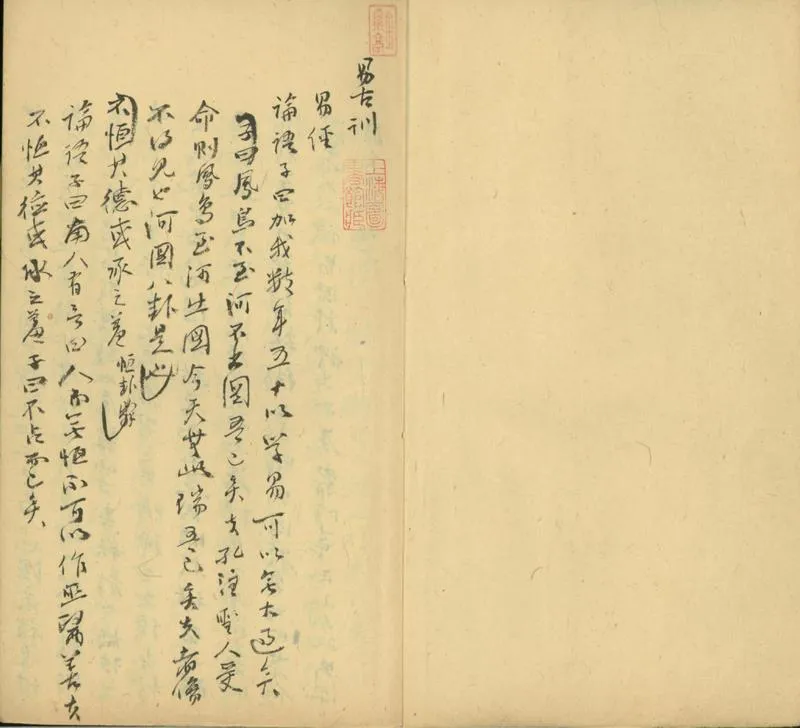 易古訓
易經
論語子曰加我數年五十以学易可以無大過矣
子曰鳳鳥不至河不出圖吾已矣夫孔注聖人受
命則鳳鳥至河出圖今天無此瑞吾已矣夫者傷
不得見也河圖八卦是也
不恒其德或承之羞恒卦辭
論語子曰南人有言曰人而无恒不可以作巫醫善夫
不恒其德或承之羞子曰不占而已矣